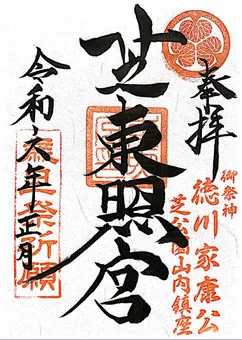 奉拝
御祭神
徳川家康公
芝公園山内鎮座
芝東照宮
令和六年正月